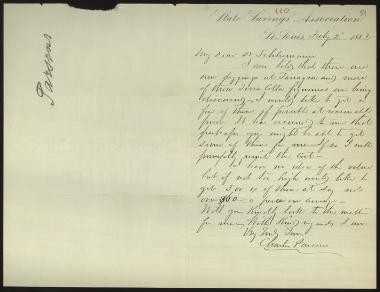 110
91
State Savings Association
St. Louis July 2d 1882
Parsons
My dear Dr Schliemann
I am told that there are
new diggings at Tanagra and more
of those Terra Cotta figurines are being
discovered. I would like to get a
few of them if possible at reasonable
price. It has occurred to me that
perhaps you might be able to get
some of them for me. If so I will
promptly remit the cost—
I have no idea of the value
but if not too high would like to
get 3, or 4 of them at say not
over
a piece on average—
Will you kindly look to the matter
for me. With kind regards I am
Very Truly Yours
Charles Parsons